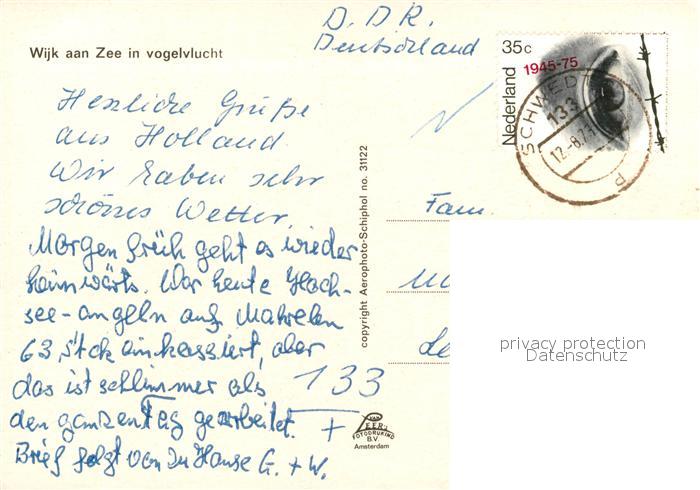 D.D.R.
Deutschland
Wijk aan Zee in vogelvlucht
35c
1945-75
Nederland
SCHWEDT
133
12.-8.7
P
Herzliche Grüße
aus Holland.
Wir haben sehr
schönes Wetter.
Morgen früh geht es wieder
heimwärts. War heute Hoch-
see-angeln auf Makrelen
63 Stck einkassiert, aber
das ist schlimmer als
den ganzen Tag gearbeitet.
Brief folgt von zu Hause G. + W.
Fam.
133
+
copyright Aerophoto-Schiphol no. 31122
VAN LEER'S
FOTODRUKIND
B.V.
Amsterdam
privacy protection
Datenschutz